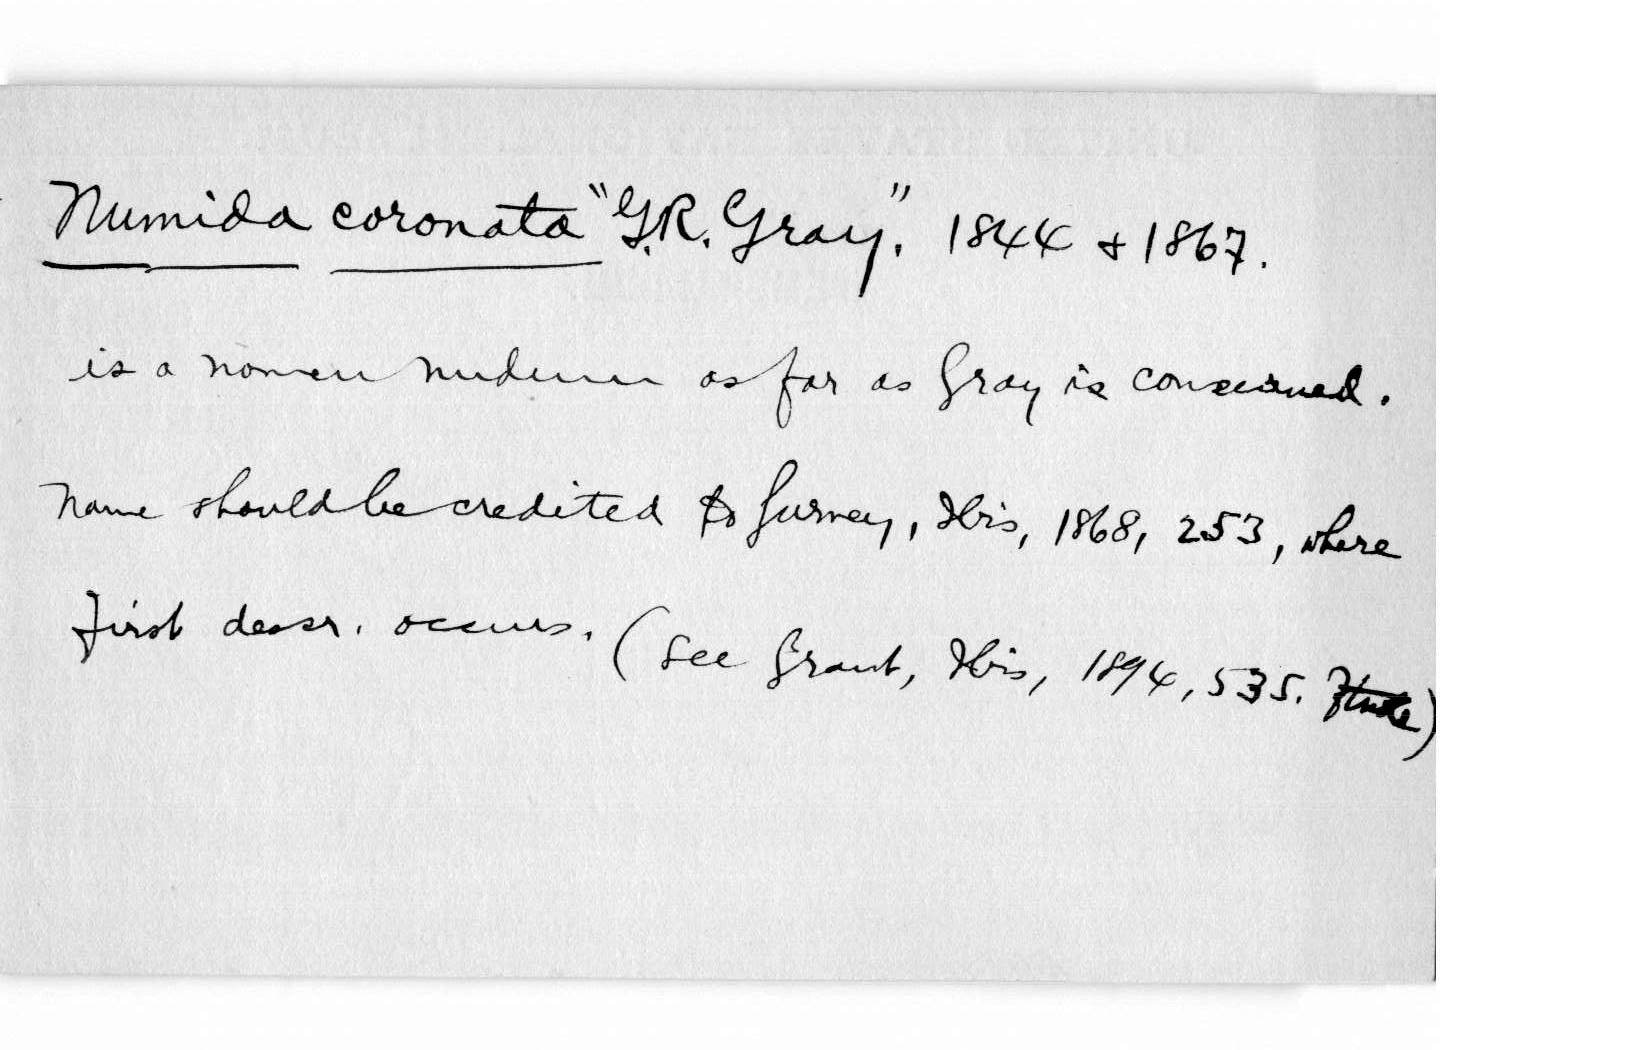 Numida coronata "G.R. Gray". 1844 & 1867.
is a nomen nudum as far as Gray is concerned.
Name should be credited to Gurney, Ibis, 1868, 253, where
first descr. occurs. (See Grant, Ibis, 1894, 535.)